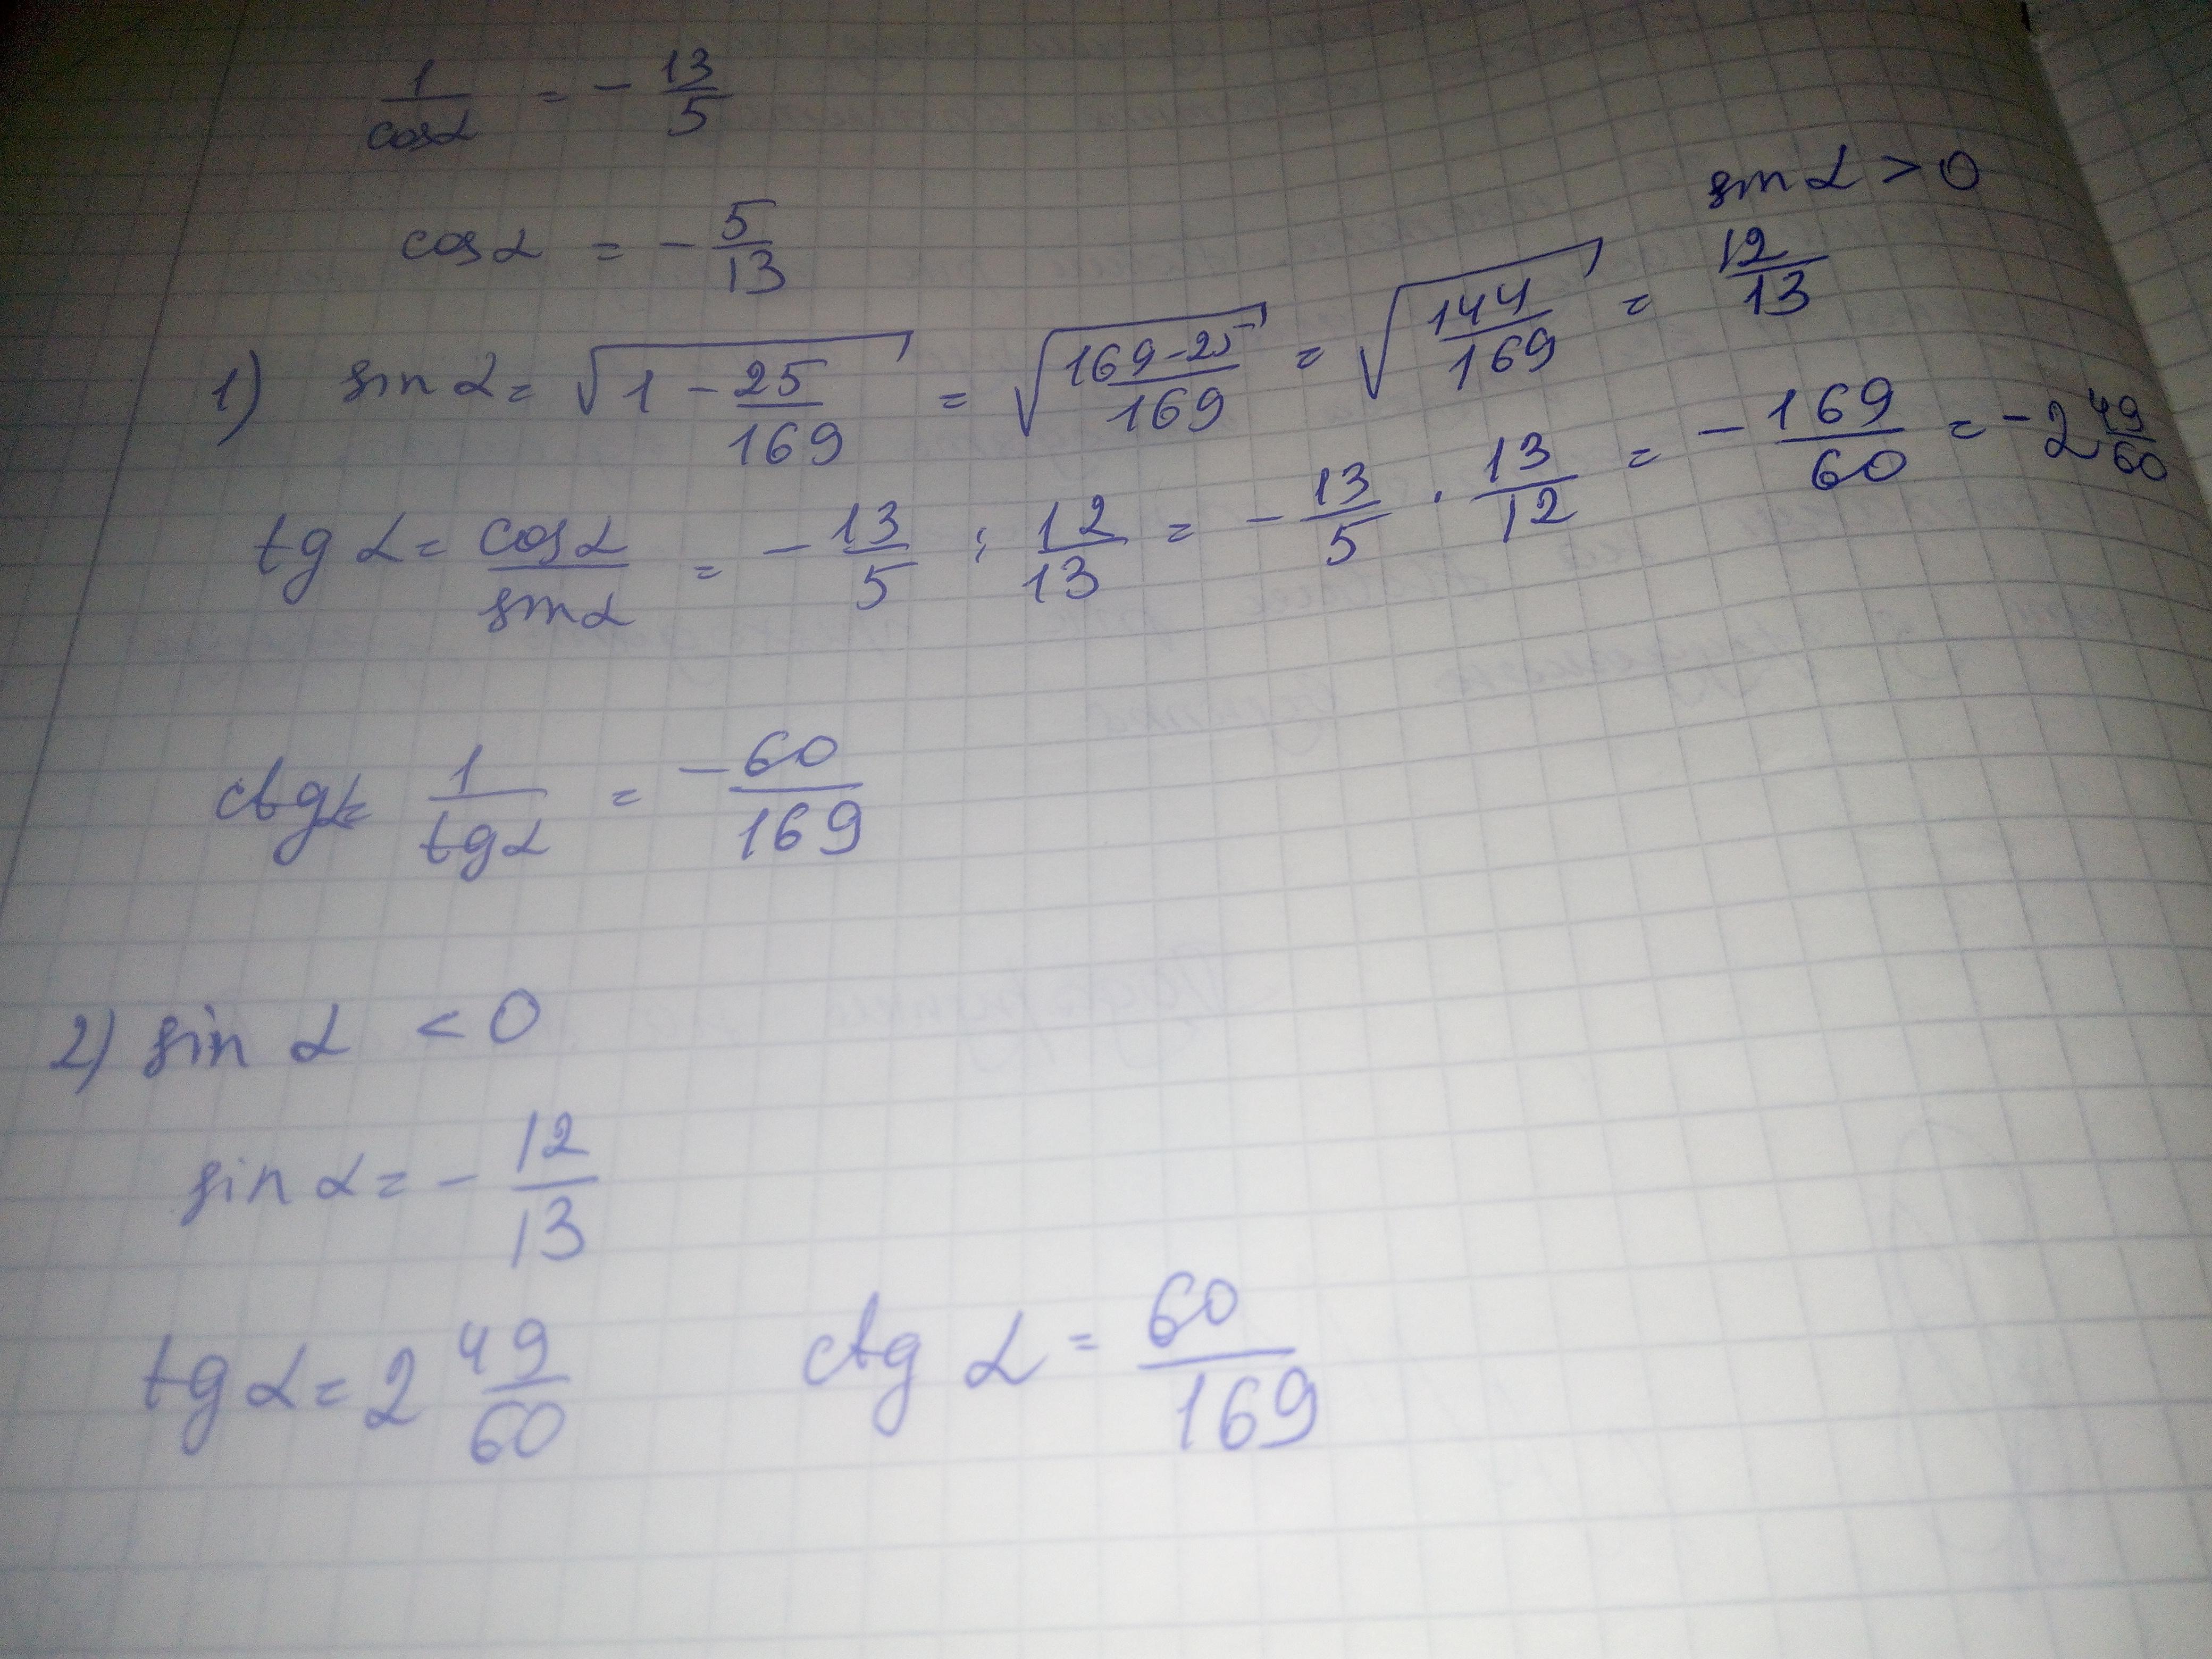 1/cosα = - 13/5
cosα = - 5/13
sin α > 0
1) sin α = √(1 - 25/169) = √((169-25)/169) = √(144/169) = 12/13
tg α = cosα/sinα = - 13/5 : 12/13 = - 13/5 · 13/12 = - 169/60 = - 2 49/60
ctgα = 1/tgα = - 60/169
2) sin α < 0
sin α = - 12/13
tg α = 2 49/60 ctg α = 60/169